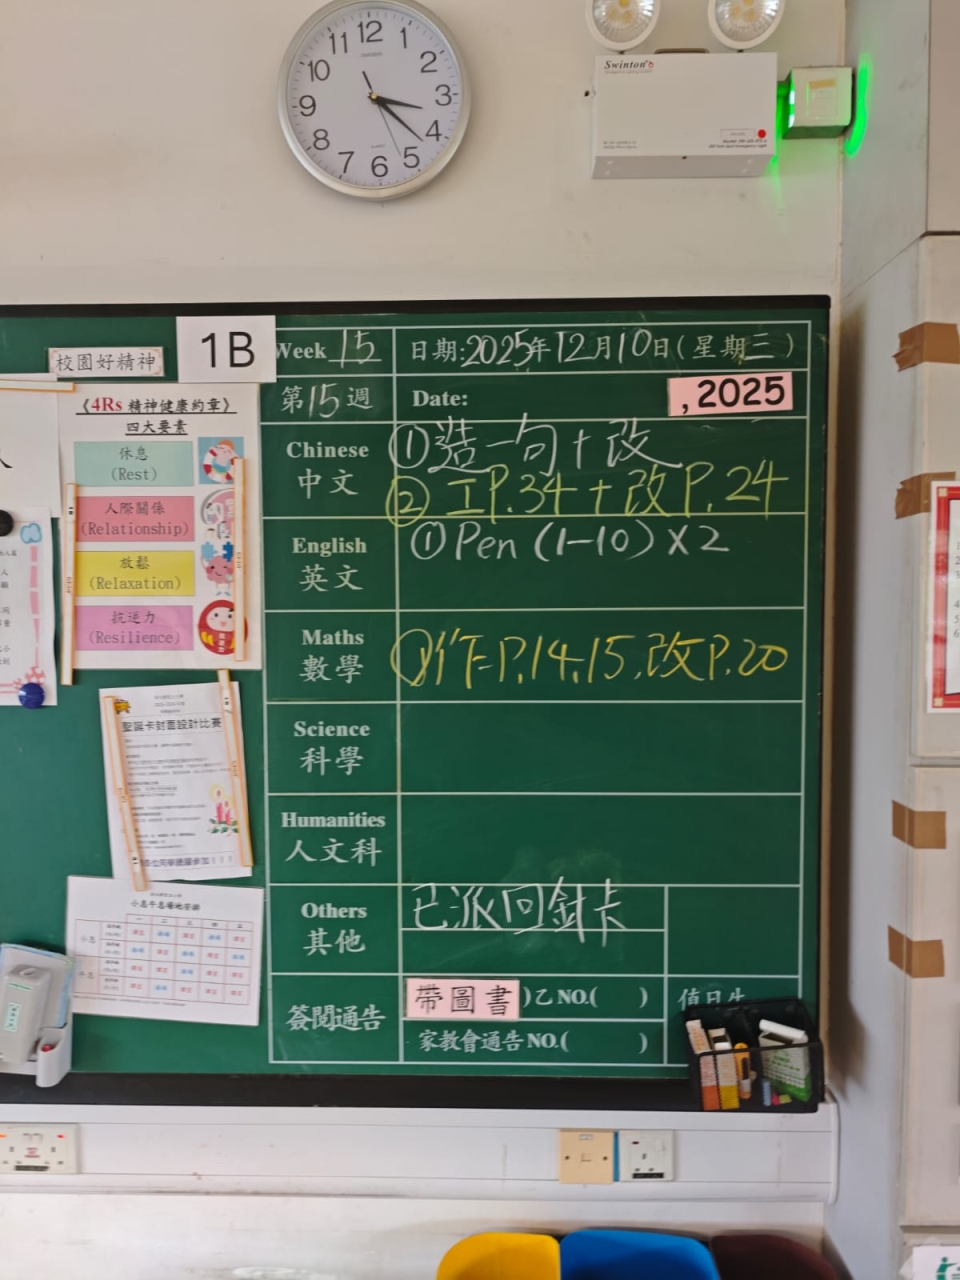 12
1
2
3
4
5
6
7
8
9
10
11
Swinton
1B
校園好精神
《4Rs 精神健康約章》
四大要素
休息
(Rest)
人際關係
(Relationship)
放鬆
(Relaxation)
抗逆力
(Resilience)
聖誕卡封面設計比賽
小息午息場地安排
Week 15
日期:2025年12月10日(星期三)
第15週
Date:
,2025
Chinese
中文
①造一句+改
②工P.34+改P.24
English
英文
①Pen (1-10)×2
Maths
數學
P.14,15,改P.20
Science
科學
Humanities
人文科
Others
其他
已派回針卡
簽閱通告
帶圖書
)乙NO.( )
家教會通告NO.( )
值日生